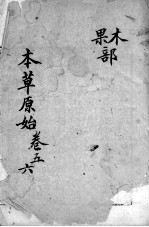 木
果部
本草原始卷五六